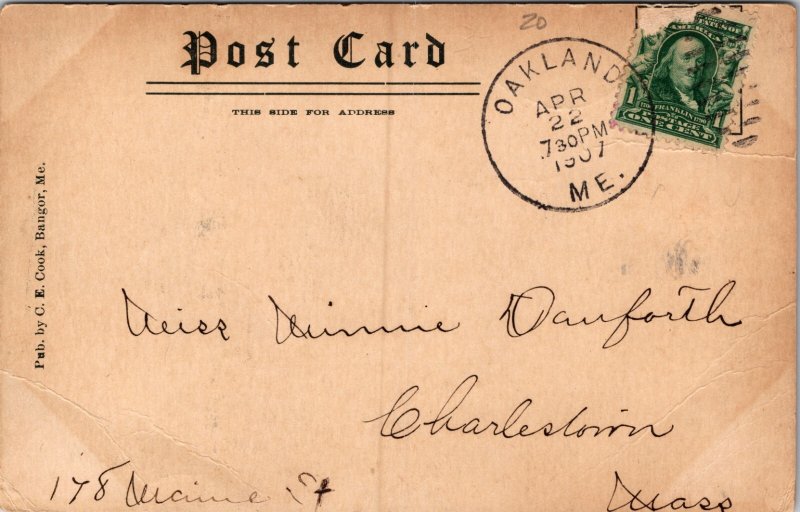 20
Post Card
THIS SIDE FOR ADDRESS
OAKLAND
APR
22
730PM
1907
ME.
AMERICA
FRANKLIN
POSTAGE
1 ONE CENT 1
Pub. by C. E. Cook, Bangor, Me.
Miss Minnie Danforth
Charlestown
178 Maine St
Mass